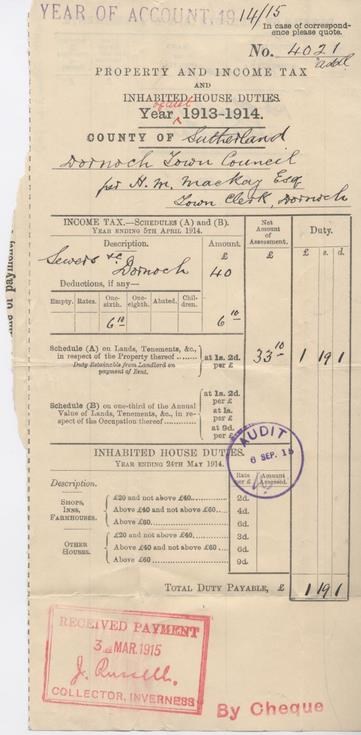 YEAR OF ACCOUNT, 1914/15
In case of correspond-
ence please quote.
No. 4021
addl
PROPERTY AND INCOME TAX
AND
INHABITED HOUSE DUTIES.
Year 1913-1914.
COUNTY OF Sutherland
Dornoch Town Council
per H. M. Mackay Esq
Town Clerk, Dornoch
INCOME TAX.—SCHEDULES (A) AND (B).
YEAR ENDING 5TH APRIL 1914.
Net Amount of Assessment.
Duty.
Description. Amount.
£ £ £ s. d.
Sewers &c
Dornoch 40
Deductions, if any—
Empty. Rates. One-sixth. One-eighth. Abated. Chil-dren.
6 10 6 10
Schedule (A) on Lands, Tenements, &c., in respect of the Property thereof ........ at 1s. 2d. per £ 33 10 1 19 1
Duty Retainable from Landlord on payment of Rent.
Schedule (B) on one-third of the Annual Value of Lands, Tenements, &c., in re-spect of the Occupation thereof ........
at 1s. 2d. per £
at 1s. per £
at 9d. per £
AUDIT
6 SEP. 15
INHABITED HOUSE DUTIES.
YEAR ENDING 24TH MAY 1914.
Description. Rate per £ Amount Assessed.
SHOPS, INNS, FARMHOUSES.
£20 and not above £40........ 2d.
Above £40 and not above £60.... 4d.
Above £60........ 6d.
OTHER HOUSES.
£20 and not above £40........ 3d.
Above £40 and not above £60.... 6d.
Above £60........ 9d.
TOTAL DUTY PAYABLE, £ 1 19 1
RECEIVED PAYMENT
3 MAR. 1915
J. Russell.
COLLECTOR, INVERNESS
By Cheque